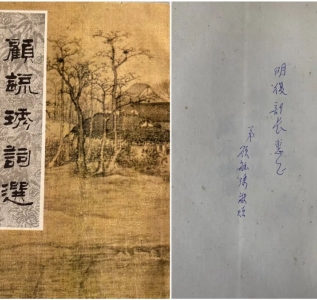 顧毓琇詞選
明復部長惠正
弟顧毓琇敬贈